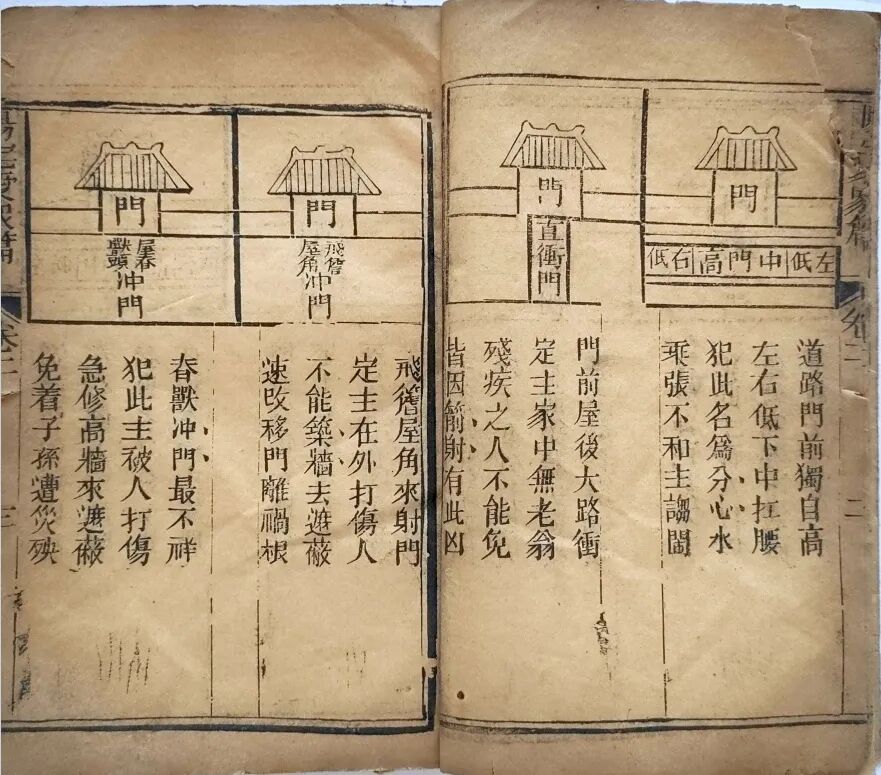 卷二
二
門
左低中門高右低
道路門前獨自高
左右低下中扛腰
犯此名爲分心水
乖張不和主謅鬧
門
直衝門
門前屋後大路衝
定主家中無老翁
殘疾之人不能免
皆因箭射有此凶
門
飛簷
屋角
冲門
飛簷屋角來射門
定主在外打傷人
不能築牆去遮蔽
速改移門離禍根
門
屋脊
獸頭
冲門
脊獸冲門最不祥
犯此主被人打傷
急修高牆來遮蔽
免着子孫遭災殃
三